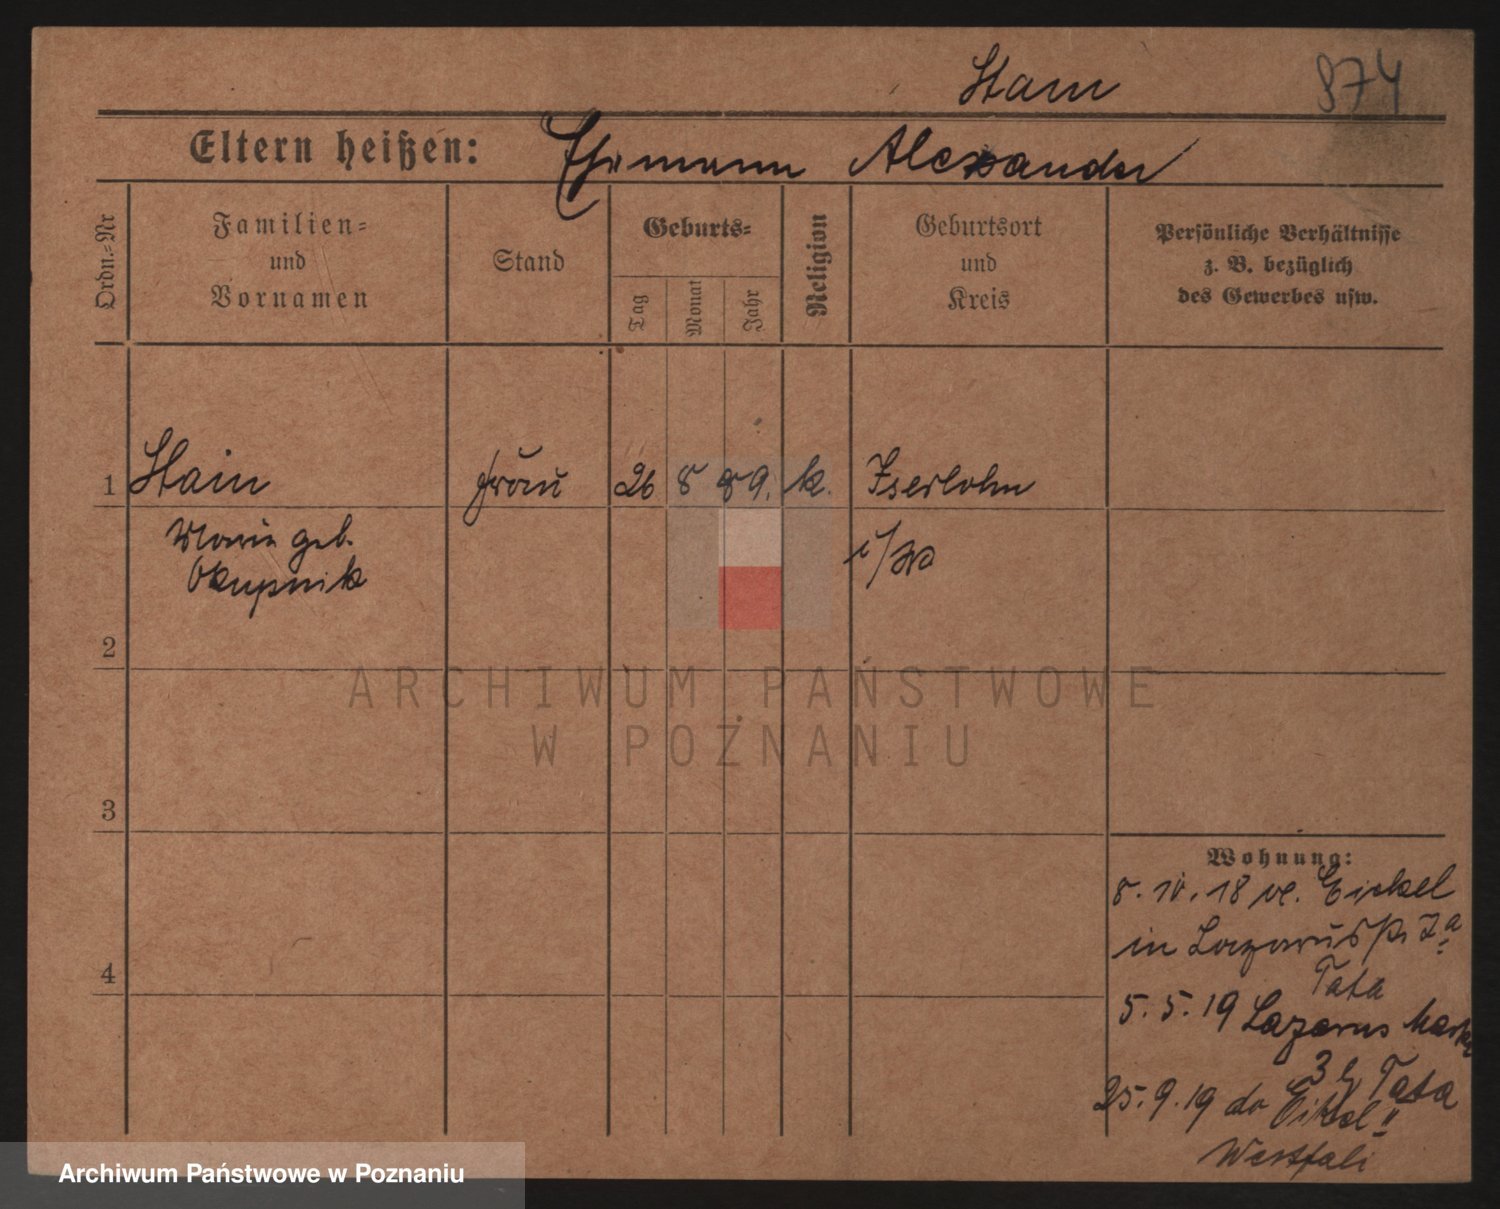 Stain
874
Eltern heißen: Ehrmann Alexander
Ordn.=Nr
Familien=
und
Vornamen
Stand
Geburts=
Tag
Monat
Jahr
Religion
Geburtsort
und
Kreis
Persönliche Verhältnisse
z. B. bezüglich
des Gewerbes usw.
1 Stain frau 26 8 89. k. Iserlohn
Marie geb. i/W
Okupnik
2
3
4
Wohnung:
8. 10. 18 v. Eickel
in Lazarusstr 7a
Tata
5. 5. 19 Lazarus Markt
3 b Tata
25. 9. 19 do Eikel
Westfali
ARCHIWUM PAŃSTWOWE
W POZNANIU
Archiwum Państwowe w Poznaniu